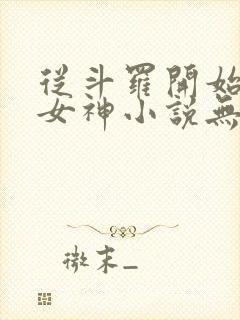 從斗羅開始
女神小說無
微末_